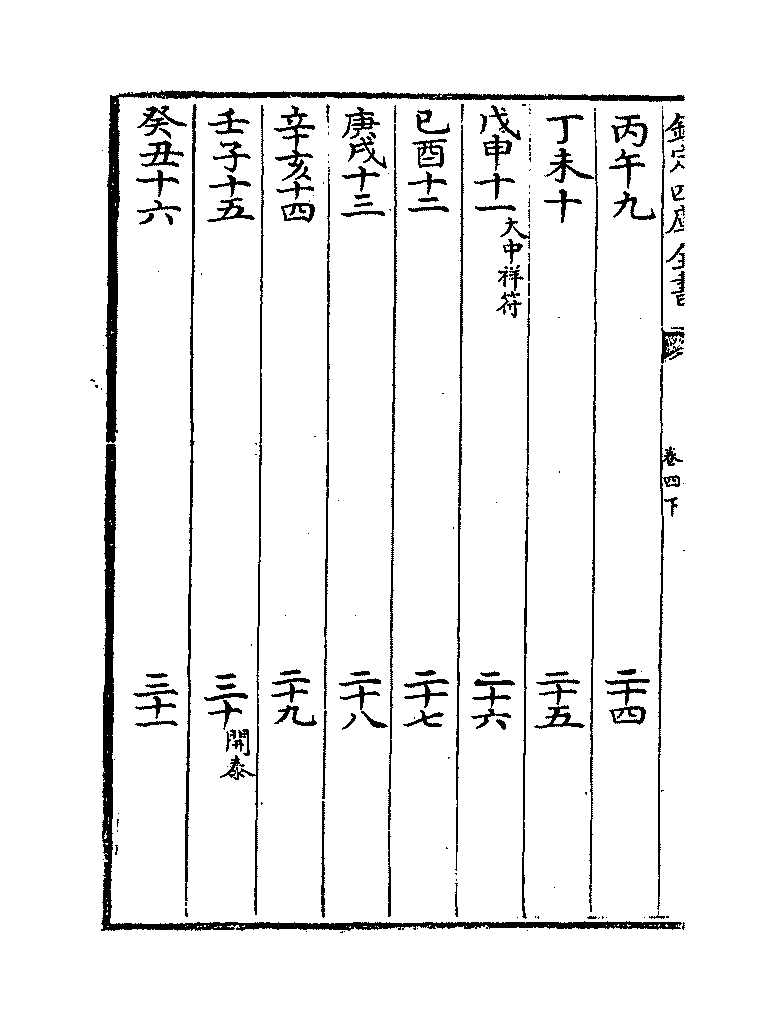 欽定四庫全書
卷四下
丙午九 二十四
丁未十 二十五
戊申十一大中祥符 二十六
已酉十二 二十七
庚戌十三 二十八
辛亥十四 二十九
壬子十五 三十開泰
癸丑十六 三十一